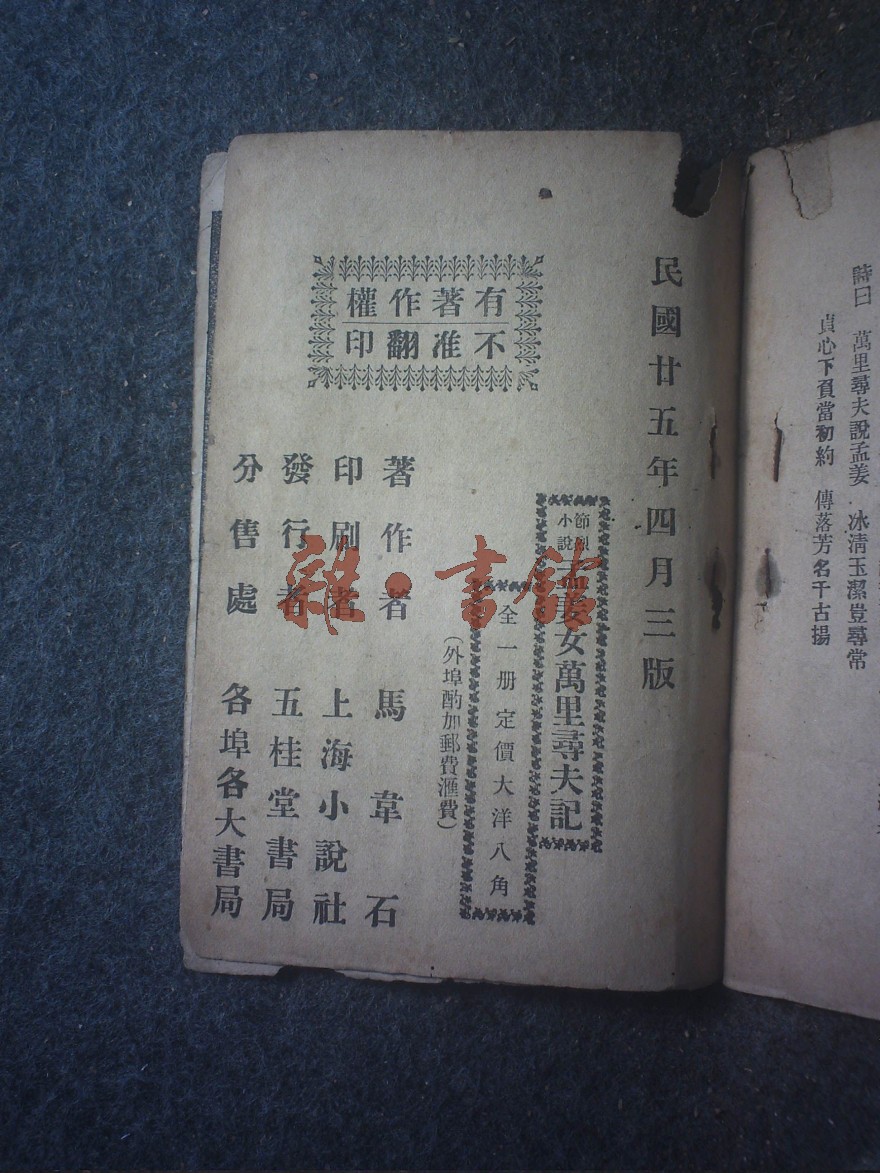 詩曰　萬里尋夫說孟姜　冰清玉潔豈尋常
貞心下頁當初約　傳落芳名千古揚
民國廿五年四月三版
有著作權
不准翻印
節烈
小說
孟姜女萬里尋夫記
全一册定價大洋八角
（外埠酌加郵費滙費）
著作者　馬韋石
印刷者　上海小說社
發行者　五桂堂書局
分售處　各埠各大書局